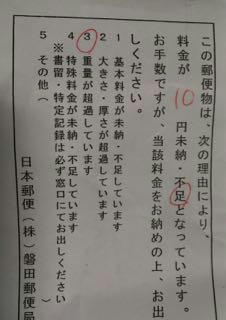 この郵便物は、次の理由により、
料金が 10 円未納・不足となっています。
お手数ですが、当該料金をお納めの上、お出
しください。
1 基本料金が未納・不足しています
2 大きさ・厚さが超過しています
3 重量が超過しています
4 特殊料金が未納・不足しています
※書留・特定記録は必ず窓口にてお出しください
5 その他( )
日本郵便(株)磐田郵便局